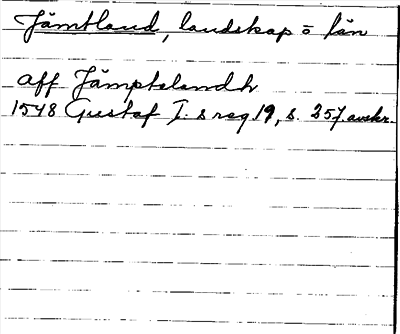 Jämtland, landskap o län
aff Jämptelandh
1548 Gustaf I:s reg. 19, s. 257. avskr.